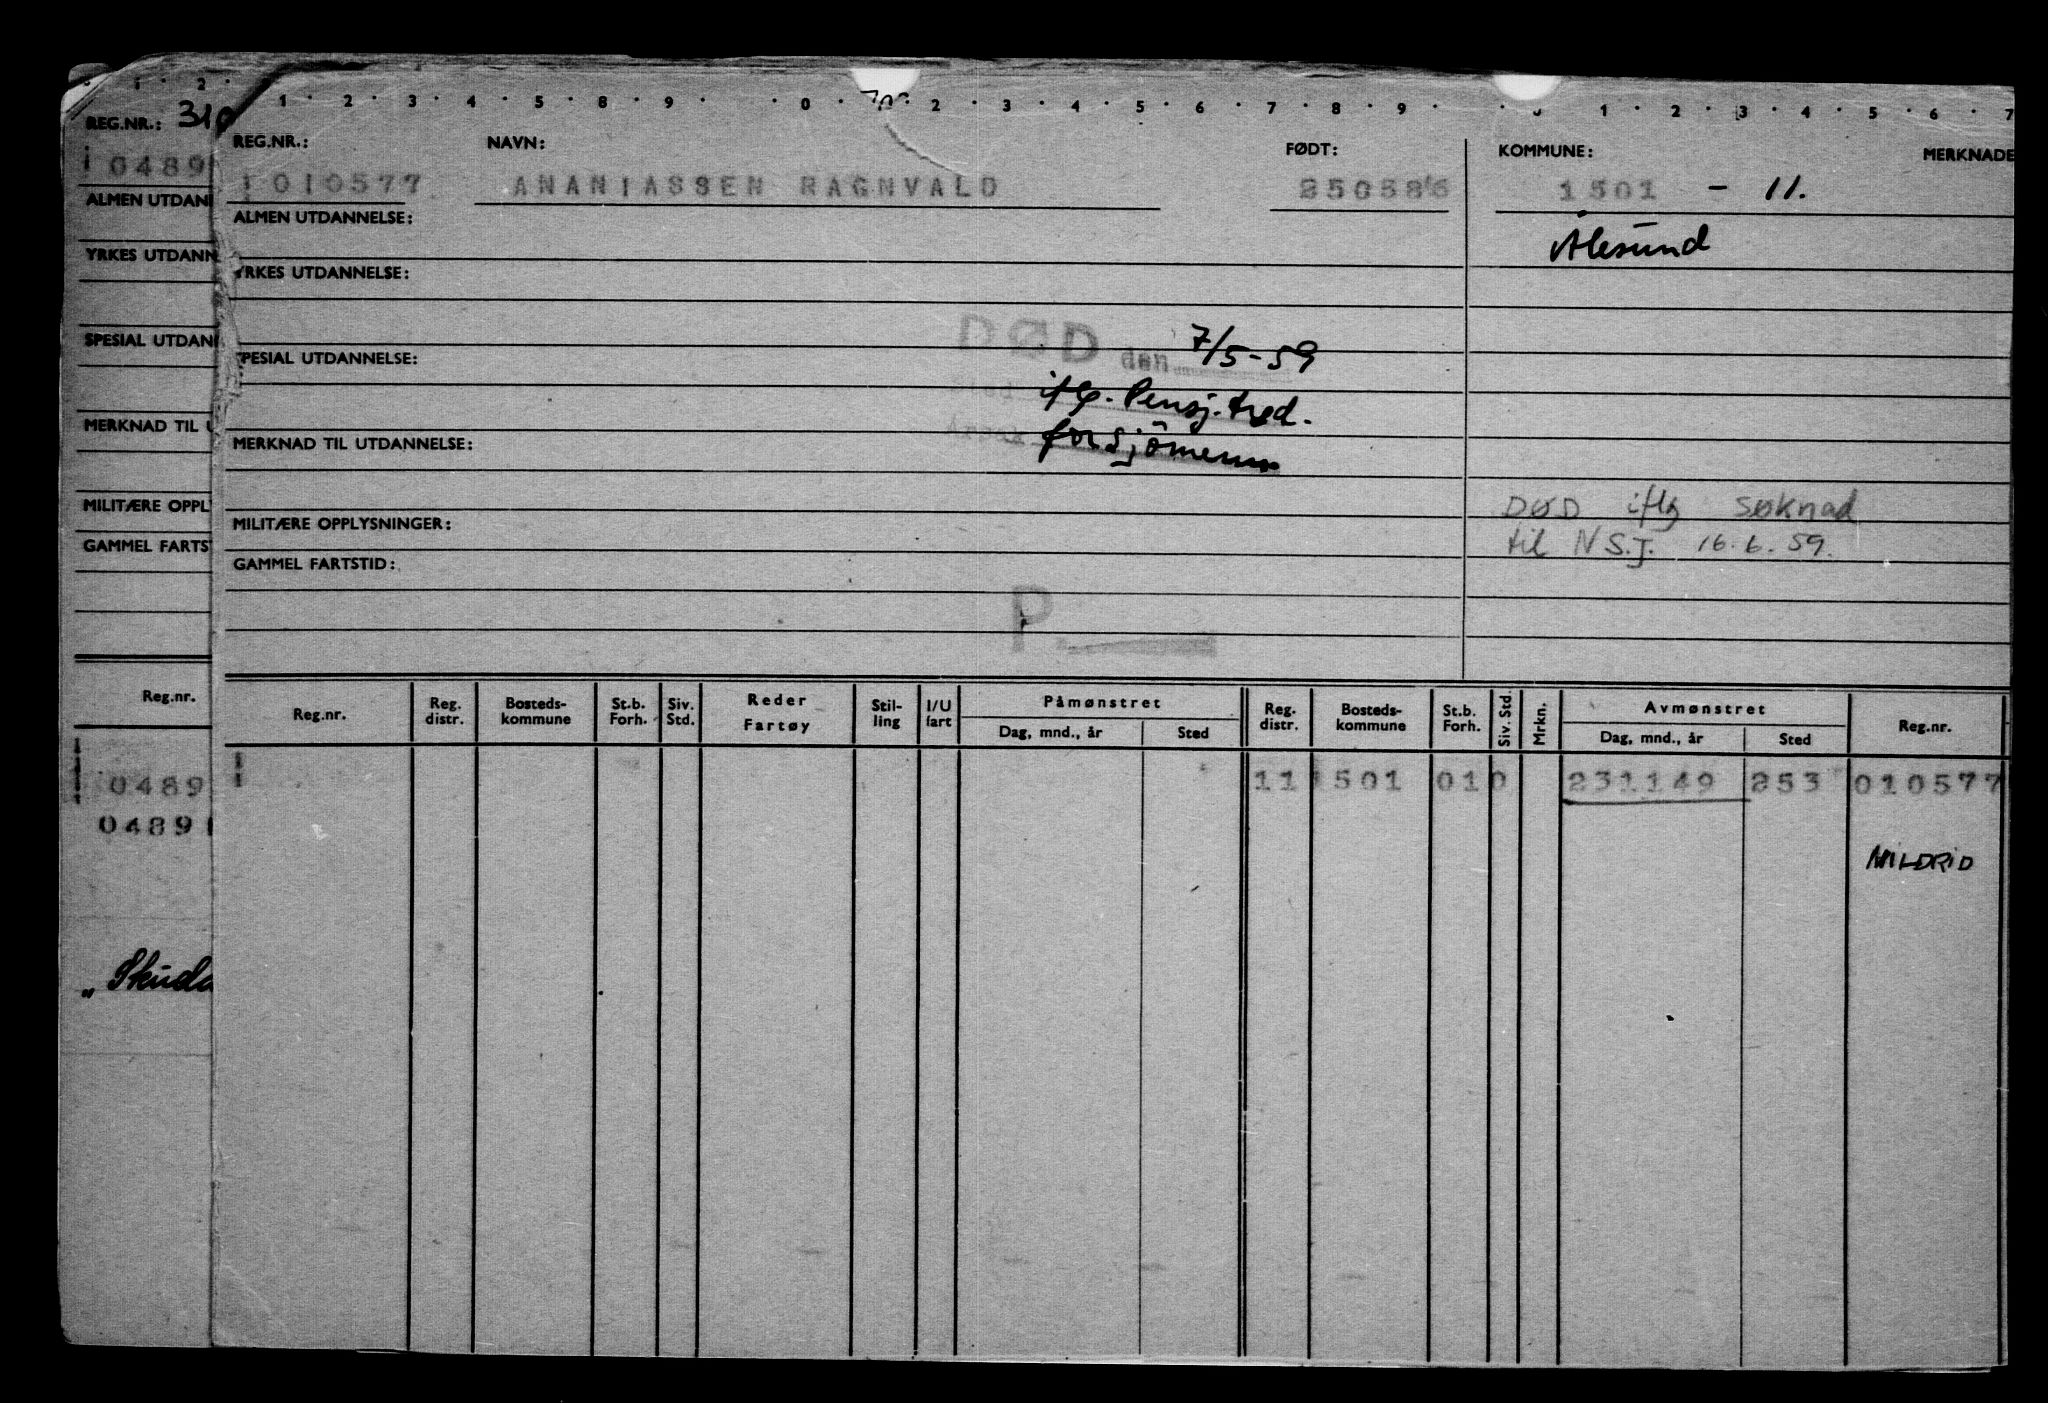 1 2
REG.NR.: 310
0489
ALMEN UTDAN
YRKES UTDANN
SPESIAL UTDAN
MERKNAD TIL U
MILITÆRE OPPL
GAMMEL FARTS
Reg.nr.
0489
0489
„Skuda
1 2 3 4 5 8 9 0 2 3 4 5 6 7 8 9 1 2 3 4 5 6 7
REG.NR.: NAVN: FØDT: KOMMUNE: MERKNADE
010577 ANANIASSEN RAGNVALD 1501 - 11.
ALMEN UTDANNELSE:
Ålesund
YRKES UTDANNELSE:
DØD den 7/5-59
SPESIAL UTDANNELSE:
iflg. Pensj.tred.
for sjömenn
MERKNAD TIL UTDANNELSE:
DØD iflg søknad
MILITÆRE OPPLYSNINGER:
til NSJ. 16.6.59.
GAMMEL FARTSTID:
P.
Reg.nr. Reg. distr. Bosteds-kommune St.b. Forh. Siv. Std. Reder Fartøy Stil-ling I/U fart Påmønstret Dag, mnd., år Sted Reg. distr. Bosteds-kommune St.b. Forh. Siv. Std. Mrkn. Avmønstret Dag, mnd., år Sted Reg.nr.
11 1501 010 231149 253 010577
MILDRID